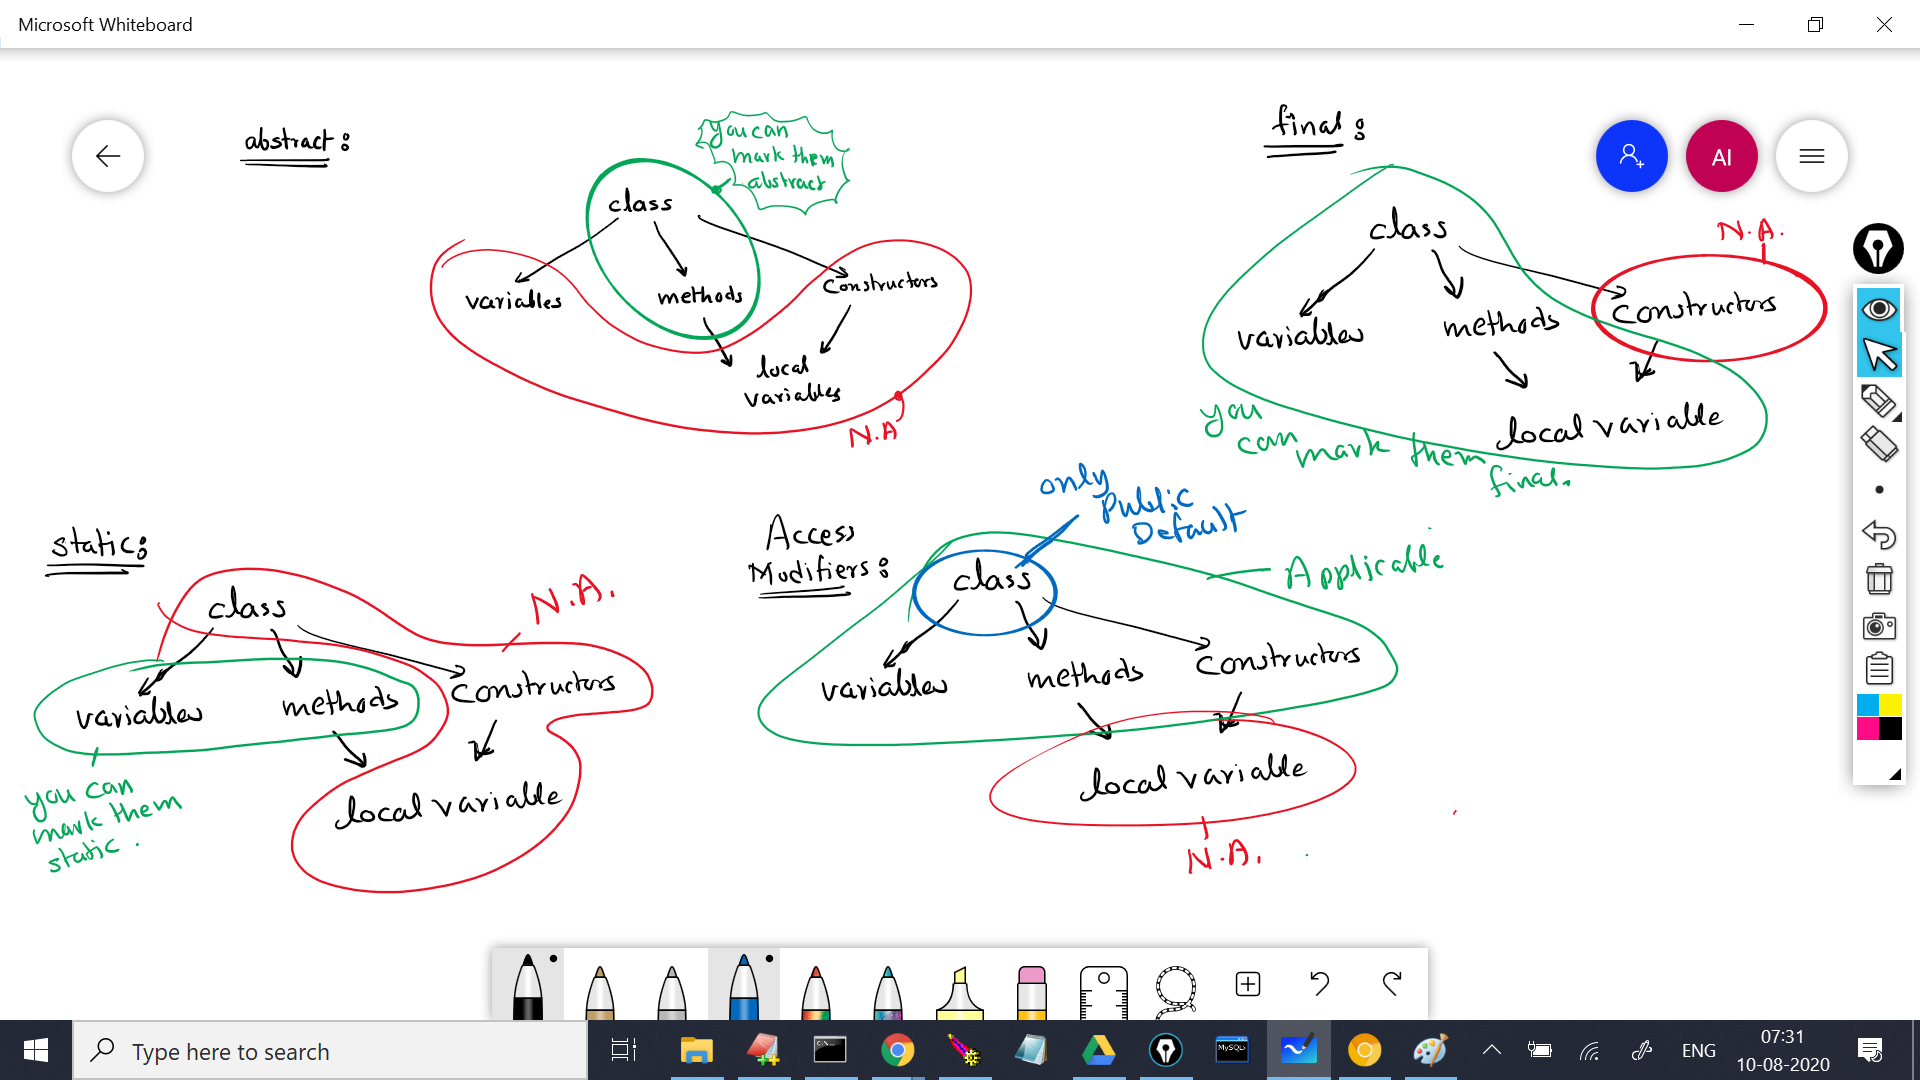 Microsoft Whiteboard
abstract:
you can
mark them
abstract
class
variables
methods
Constructors
local
variables
N.A
final:
AI
class
N.A.
variables
methods
Constructors
local variable
you
can
mark them
final.
static:
class
N.A.
variables
methods
Constructors
local variable
you can
mark them
static.
Access
Modifiers:
only
Public
Default
class
Applicable
variables
methods
Constructors
local variable
N.A.
Type here to search
C:\.
MySQL
ENG
07:31
10-08-2020